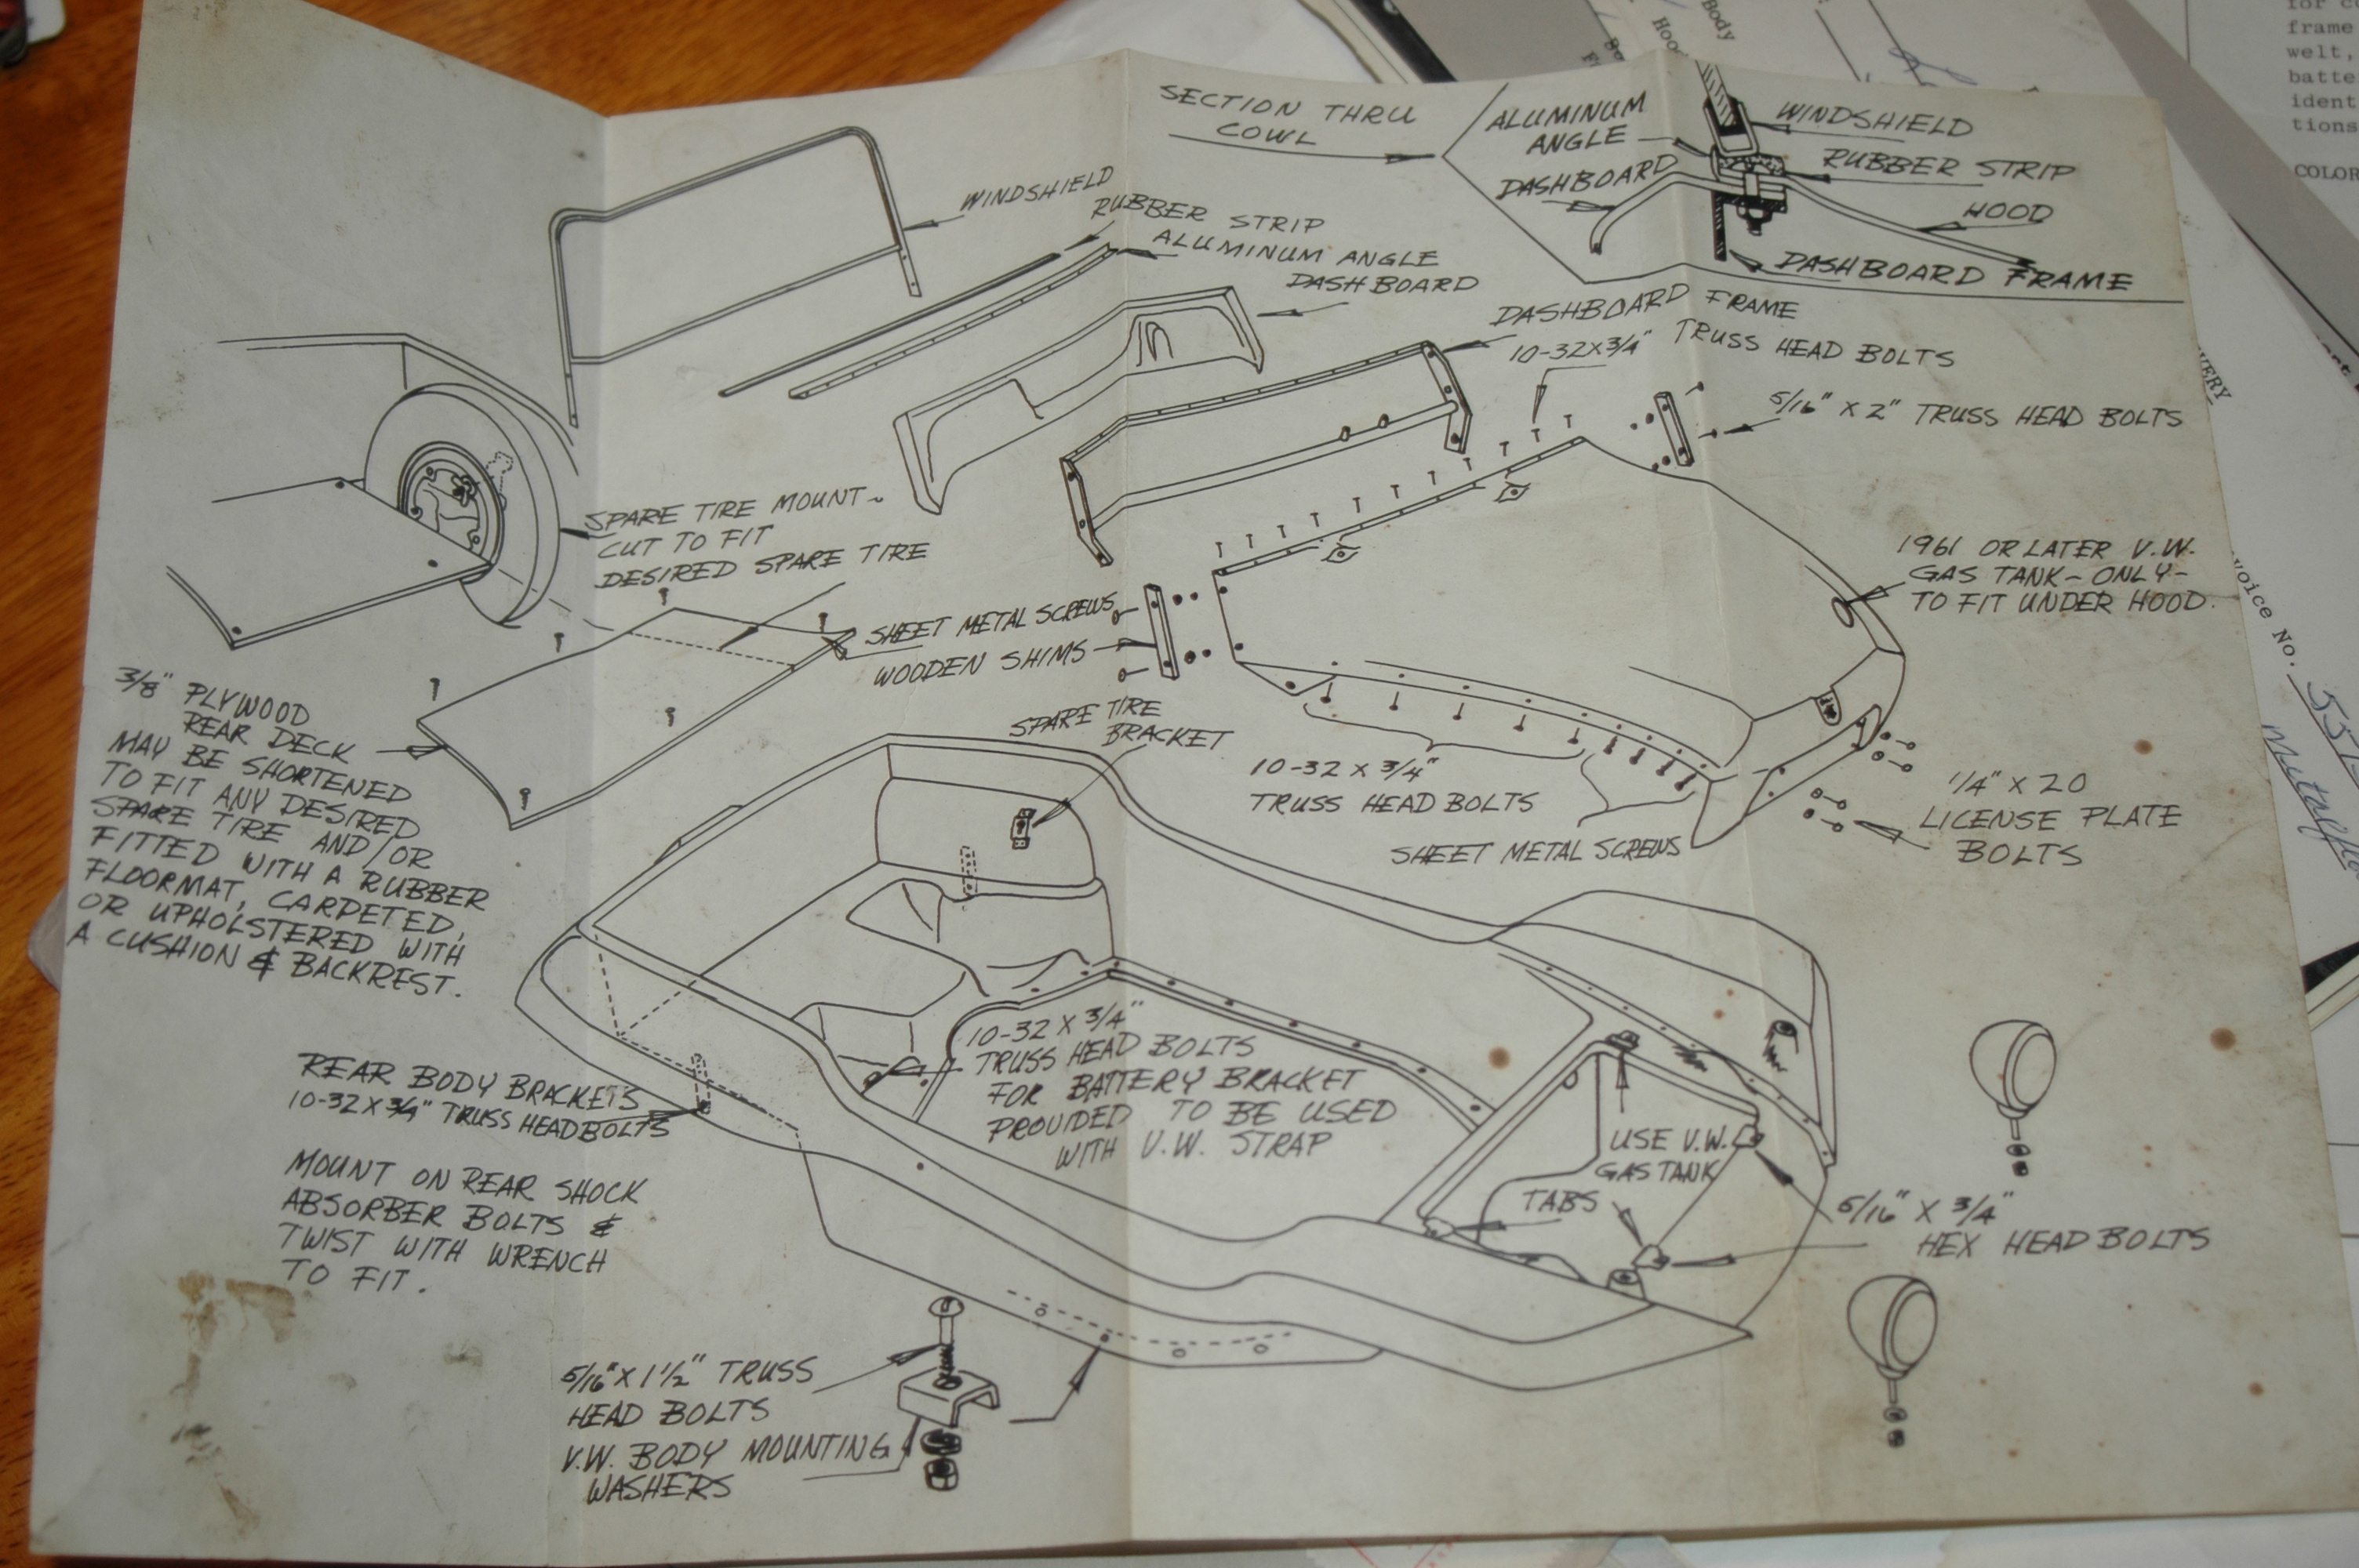 SECTION THRU
COWL
ALUMINUM
ANGLE
DASHBOARD
WINDSHIELD
RUBBER STRIP
HOOD
DASHBOARD FRAME
WINDSHIELD
RUBBER STRIP
ALUMINUM ANGLE
DASHBOARD
DASHBOARD FRAME
10-32X3/4" TRUSS HEAD BOLTS
5/16" X 2" TRUSS HEAD BOLTS
SPARE TIRE MOUNT~
CUT TO FIT
DESIRED SPARE TIRE
SHEET METAL SCREWS
WOODEN SHIMS
1961 OR LATER V.W.
GAS TANK-ONLY-
TO FIT UNDER HOOD.
3/8" PLYWOOD
REAR DECK
MAY BE SHORTENED
TO FIT ANY DESIRED
SPARE TIRE AND/OR
FITTED WITH A RUBBER
FLOORMAT, CARPETED,
OR UPHOLSTERED WITH
A CUSHION & BACKREST.
SPARE TIRE
BRACKET
10-32 X 3/4"
TRUSS HEAD BOLTS
SHEET METAL SCREWS
1/4" X 20
LICENSE PLATE
BOLTS
10-32 X 3/4"
TRUSS HEAD BOLTS
FOR BATTERY BRACKET
PROVIDED TO BE USED
WITH V.W. STRAP
REAR BODY BRACKETS
10-32X3/4" TRUSS HEAD BOLTS
MOUNT ON REAR SHOCK
ABSORBER BOLTS &
TWIST WITH WRENCH
TO FIT.
USE V.W.
GAS TANK
TABS
5/16" X 3/4"
HEX HEAD BOLTS
5/16" X 1 1/2" TRUSS
HEAD BOLTS
V.W. BODY MOUNTING
WASHERS
Body
frame
welt,
COLOR